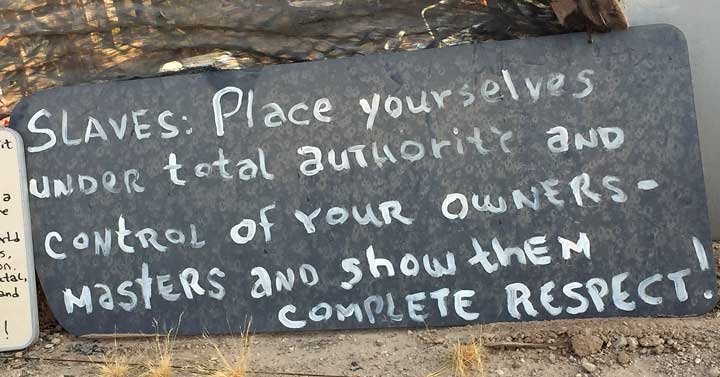 SLAVES: Place yourselves
UNDER total AUTHORITY AND
CONTROL OF YOUR OWNERS-
MASTERS AND show thEM
COMPLETE RESPECT!
it
a
rld
s,
on,
and
!